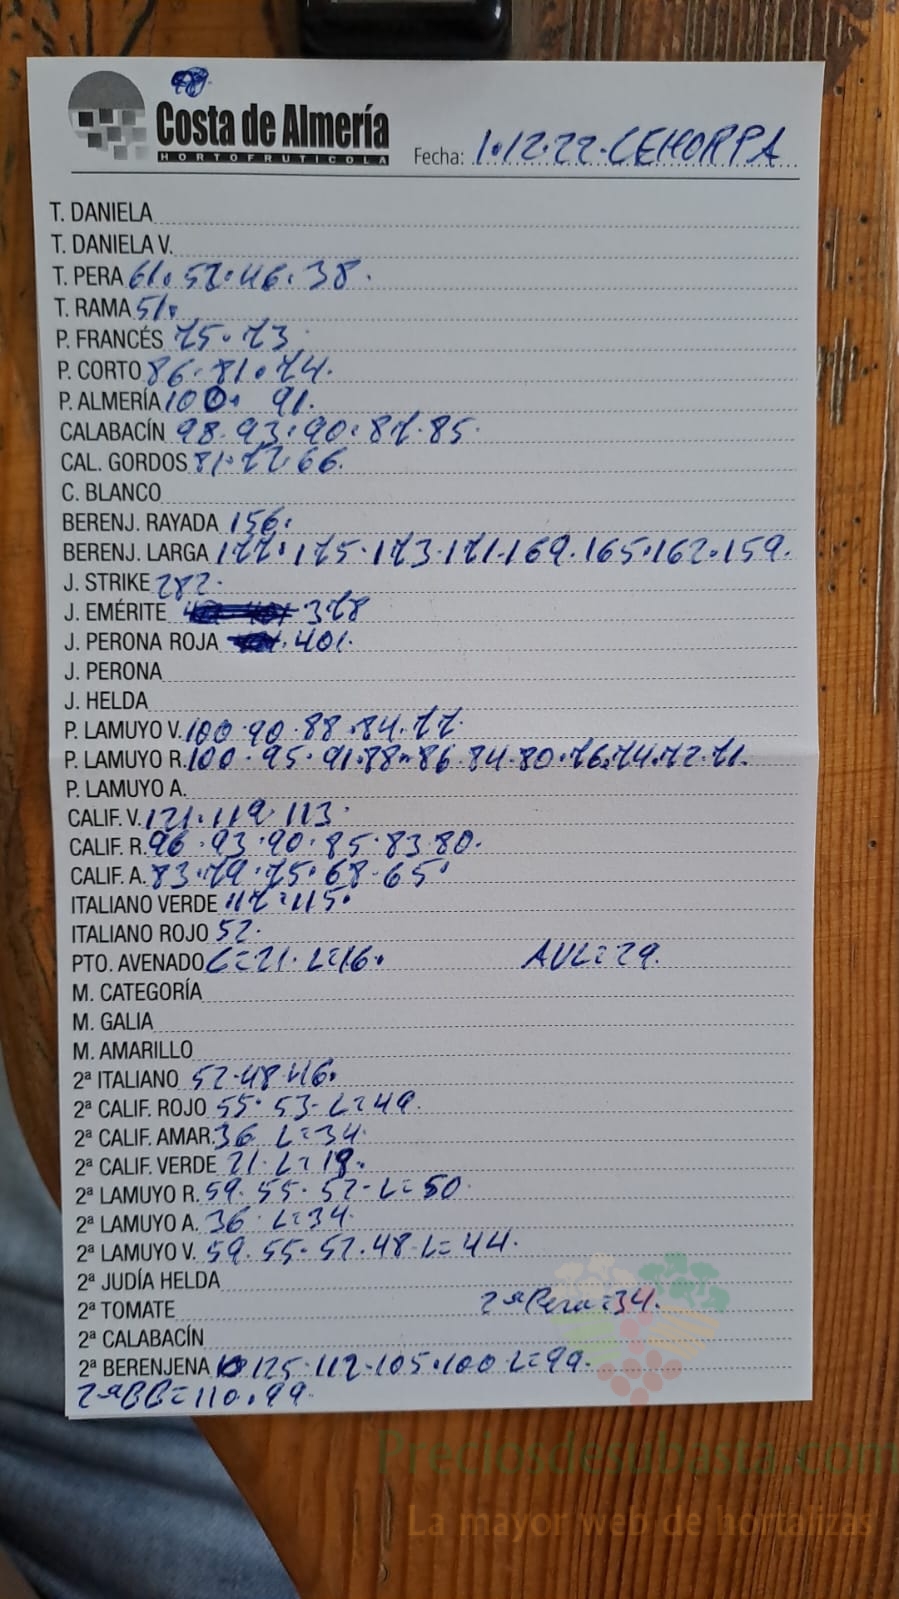 Costa de Almería
HORTOFRUTICOLA
Fecha: 1.12.22. CEHORPA
T. DANIELA
T. DANIELA V.
T. PERA 61. 52. 46. 38.
T. RAMA 51.
P. FRANCÉS 75. 73.
P. CORTO 86. 81. 74.
P. ALMERÍA 100. 91.
CALABACÍN 98. 93. 90. 87. 85.
CAL. GORDOS 81. 77. 66.
C. BLANCO
BERENJ. RAYADA 156.
BERENJ. LARGA 177. 175. 173. 171. 169. 165. 162. 159.
J. STRIKE 282.
J. EMÉRITE 378
J. PERONA ROJA 401.
J. PERONA
J. HELDA
P. LAMUYO V. 100. 90. 88. 84. 77.
P. LAMUYO R. 100. 95. 91. 88. 86. 84. 80. 76. 74. 72. 71.
P. LAMUYO A.
CALIF. V. 121. 119. 113.
CALIF. R. 96. 93. 90. 85. 83. 80.
CALIF. A. 83. 79. 75. 68. 65.
ITALIANO VERDE 117. 115.
ITALIANO ROJO 52.
PTO. AVENADO C=21. L=16. AVL=29.
M. CATEGORÍA
M. GALIA
M. AMARILLO
2ª ITALIANO 52. 48. 46.
2ª CALIF. ROJO 55. 53. L=49.
2ª CALIF. AMAR. 36 L=34.
2ª CALIF. VERDE 21. L=19.
2ª LAMUYO R. 59. 55. 52. L=50.
2ª LAMUYO A. 36. L=34.
2ª LAMUYO V. 59. 55. 52. 48. L=44.
2ª JUDÍA HELDA
2ª TOMATE 2ª Pera=34.
2ª CALABACÍN
2ª BERENJENA 125. 112. 105. 100 L=99.
2ª BB=110. 99.
Preciosdesubasta.com
La mayor web de hortalizas